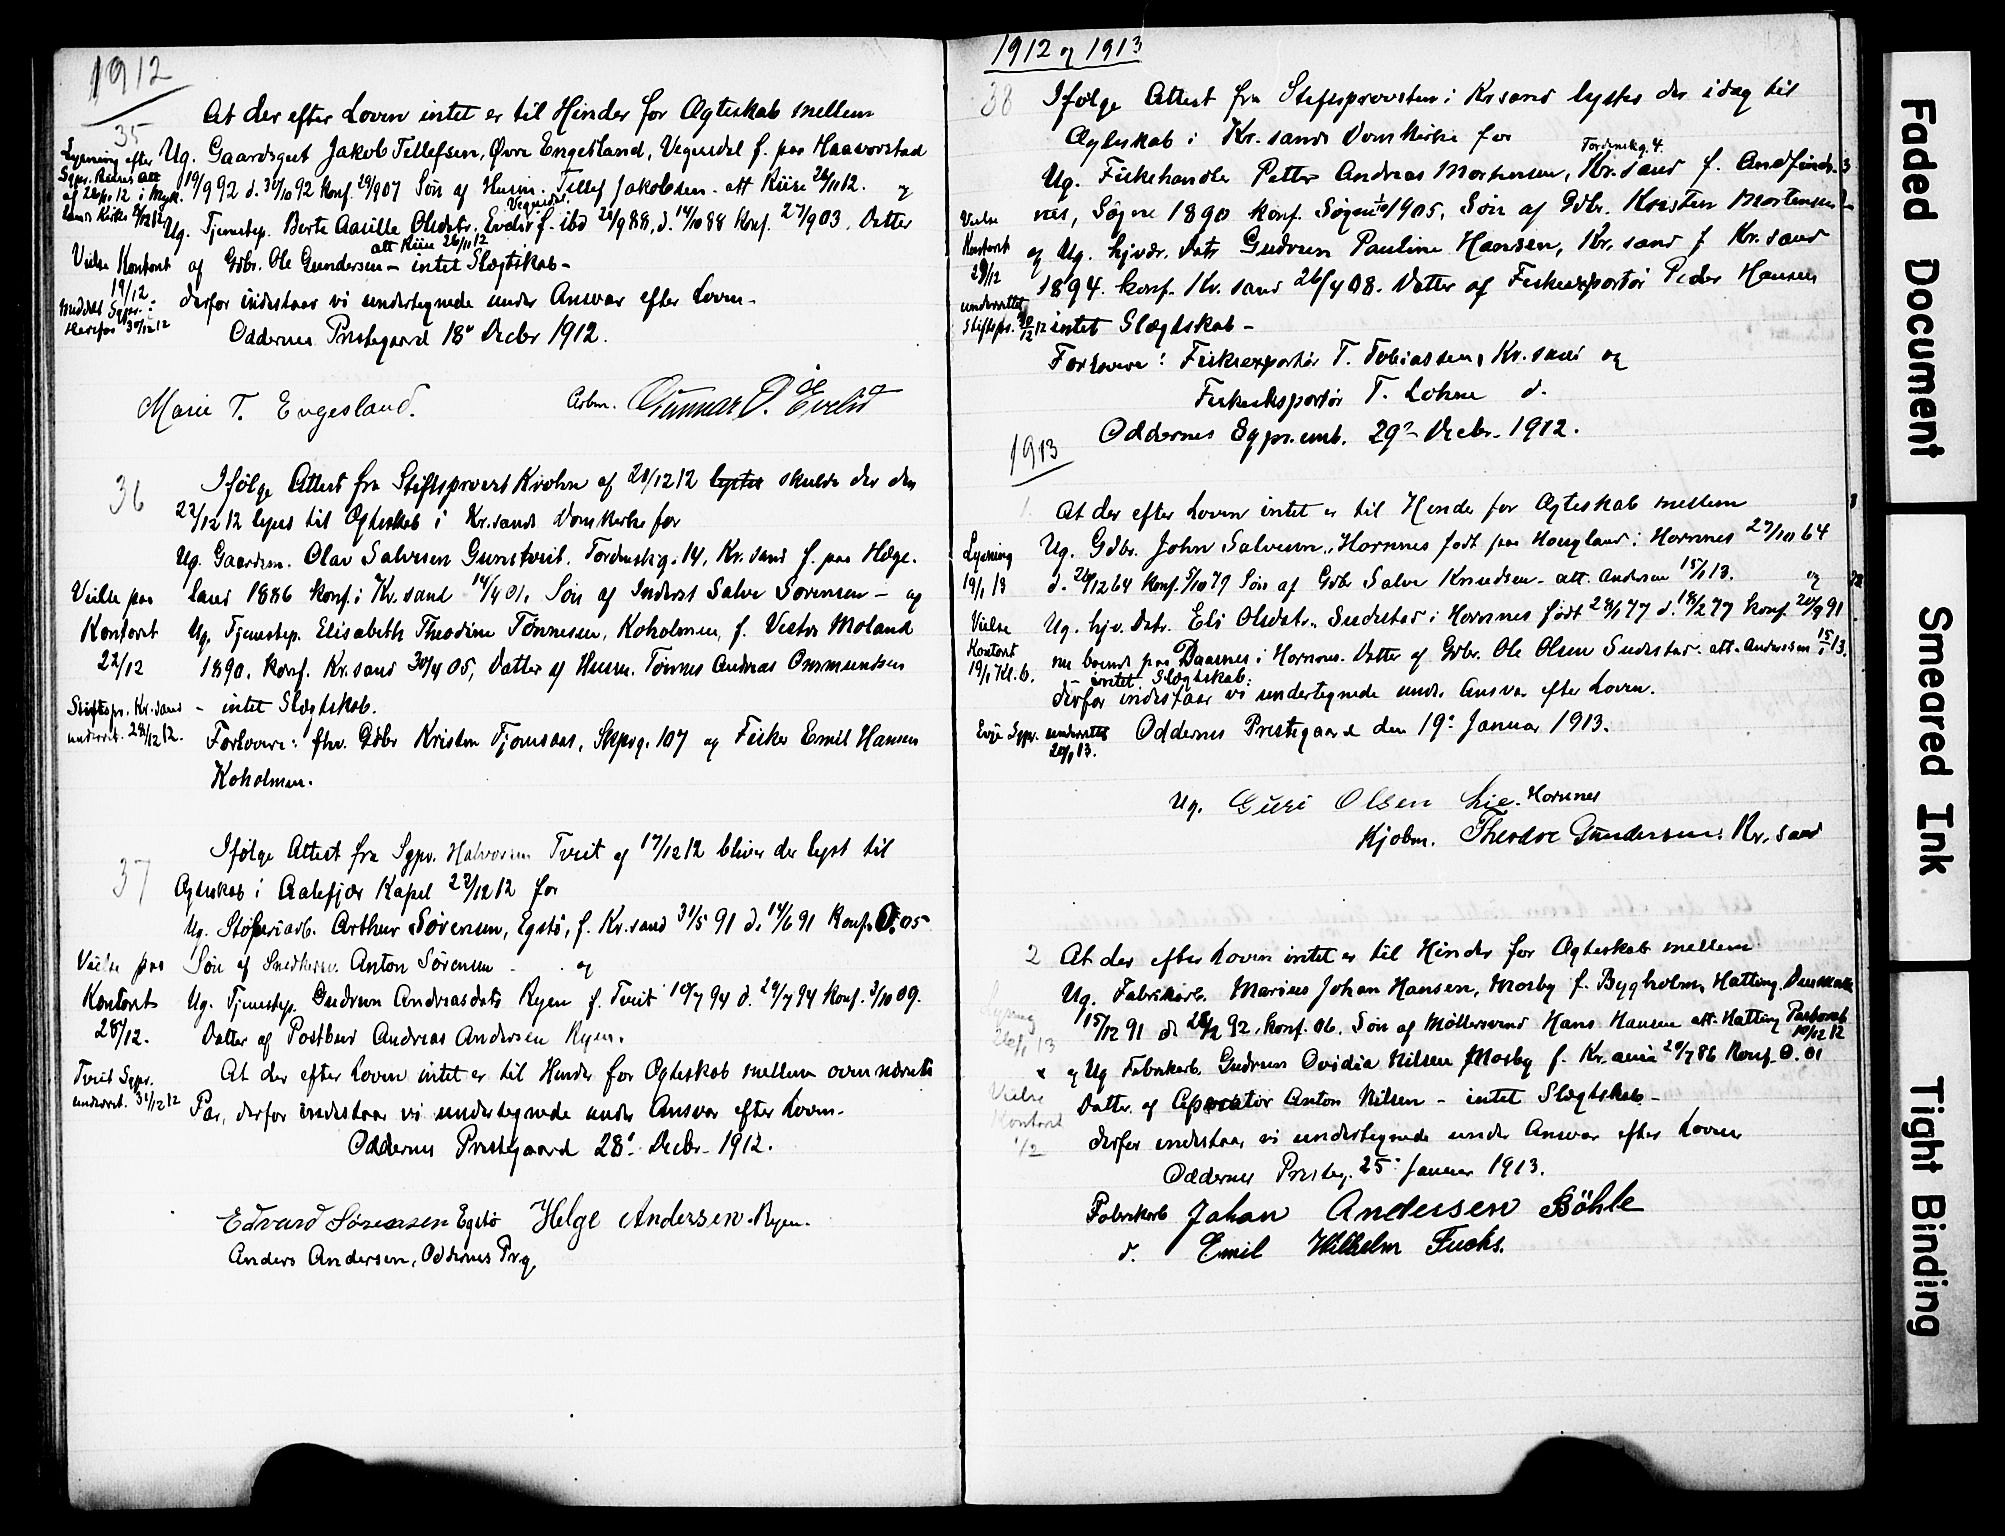 1912
35
At der efter Loven intet er til Hinder for Ægteskab mellem
Ug. Gaardsgut Jakob Tellefsen, Øvre Engesland, Vegusdal f. paa Haavorstad
19/9 92 d. 30/10 92 konf. 29/9 07 Søn af Husm. Tellef Jakobsen. att Riise 26/11 12. og
Ug. Tjenestep. Berte Aasille Olsdatr. Evelid Vegusdal. f. ibd 20/9 88, d. 14/10 88 Konf. 27/9 03. Datter
af Gdbr. Ole Gundersen - att Riise 26/11 12 intet Slægtskab -
derfor indestaar vi undertegnede under Ansvar efter Loven.
Oddernes Prestegaard 18de Decbr 1912.
Lysning efter
Sgpr. Riises att
af 26/11 12 i
lands Kirke 8/12 12
Vielse Kontoret
19/12.
meddelt Sgpr.
Herefos 30/12 12
Marie T. Engesland. Arbm. Gunnar O. Evelid
36
Ifølge Attest fra Stiftsprovst Krohn af 20/12 12 lystes skulde der den
22/12 12 lyses til Ægteskab i Kr.sands Domkirke for
Ug. Gaardsm. Olav Salvesen Gunstveit. Tordenskg. 14, Kr.sand f. paa Hæge-
land 1886 konf. i Kr.sand 14/4 01. Søn af Inderst Salve Sørensen - og
Ug. Tjenestep. Elisabeth Theodine Tønnesen, Koholmen, f. Vestre Moland
1890. konf. Kr.sand 30/4 05, Datter af Husm. Tønnes Andreas Ommundsen
- intet Slægtskab.
Forlovere: fhv. Gdbr Kristen Tjomsaas, Skipsg. 107 og Fisker Emil Hansen
Koholmen.
Vielse paa
Kontoret
22/12
Stiftspr. Kr.sand
underret. 28/12 12.
37
Ifølge Attest fra Sgpr. Halvorsen Tveit af 17/12 12 bliver der lyst til
Ægteskab i Aalefjær Kapel 22/12 12 for
Ug. Støberiarb. Arthur Sørensen, Egstø, f. Kr.sand 31/5 91 d. 14/6 91 Konf. O. 05
Søn af Snedkersv. Anton Sørensen - og
Ug. Tjenestep. Gudrun Andreasdatr Ryen f. Tveit 10/7 94 d. 29/7 94 Konf. 3/10 09.
Datter af Postbud Andreas Andersen Ryen.
At der efter Loven intet er til Hinder for Ægteskab mellem ovennævnte
Par, derfor indestaar vi undertegnede under Ansvar efter Loven.
Oddernes Prestegaard 28de Decbr. 1912.
Vielse paa
Kontoret
28/12.
Tveit Sgpr.
underret. 31/12 12
Edvard Sørensen Egstø Helge Andersen. Ryen.
Anders Andersen, Oddernes Prg.
1912 og 1913
38
Ifølge Attest fra Stiftsprovsten i Krsand lystes der idag til
Ægteskab i Kr.sands Domkirke for
Ug. Fiskehandler Petter Andreas Mortensen, Tordenskg. 4. Kr.sand f. Andfinds-
nes, Søgne 1890 konf. Søgne 1905. Søn af Gdbr. Kristen Mortensen -
og Ug. hjvær. Datr Gudrun Pauline Hansen, Kr.sand f. Kr.sand
1894. konf. Kr.sand 26/4 08. Datter af Fiskeexportør Peder Hansen
intet Slægtskab -
Forlovere: Fiskeexportør T. Tobiassen, Kr.sand og
Fiskeeksportør T. Lohne d.
Oddernes Sgpr.emb. 29de Decbr. 1912.
Vielse
Kontoret
29/12
underrettet
Stiftspr. 30/12 12
1913
1.
At der efter Loven intet er til Hinder for Ægteskab mellem
Ug. Gdbr. John Salvesen, Hornnes født paa Haugland i Hornnes 27/10 64
d. 26/12 64 konf. 5/10 79 Søn af Gdbr Salve Knudsen - att. Andersen 15/1 13. og
Ug. hjv. Datr. Eli Olsdatr. Sudestad i Hornnes født 28/1 77 d. 18/2 77 konf. 20/9 91
nu boende paa Daasnes i Hornnes. Datter af Gdbr. Ole Olsen Sudestad - att. Andersen 15/1 13.
- intet Slægtskab.
derfor indestaar vi undertegnede under Ansvar efter Loven.
Oddernes Prestegaard den 19de Januar 1913.
Lysning
19/1 13
Vielse
Kontoret
19/1 Kl. 6.
Evje Sgpr. underrettet
20/1 13.
Ug. Guri Olsen Lie. Hornnes
Kjøbm. Theodor Gundersen. Kr.sand
2
At der efter Loven intet er til Hinder for Ægteskab mellem
Ug. Fabrikarb. Marius Johan Hansen, Mosby f. Bygholm, Hatting Danmark
15/12 91 d. 92. konf. 06. Søn af Møllersvend Hans Hansen att. Hatting Pastorat 10/12 12
og Ug Fabrikarb. Gudrun Ovidia Nilsen Mosby f. Kr.ania 20/7 86 Konf. O. 01
Datter af Anton Nilsen - intet Slægtskab -
derfor indestaar vi undertegnede under Ansvar efter Loven
Oddernes Presteg. 25de Januar 1913.
Lysning
26/1 13
x
Vielse
Kontoret
1/2
Fabrikarb Johan Andersen Böhle
d. Emil Wilhelm Fuchs.
Faded Document
Smeared Ink
Tight Binding